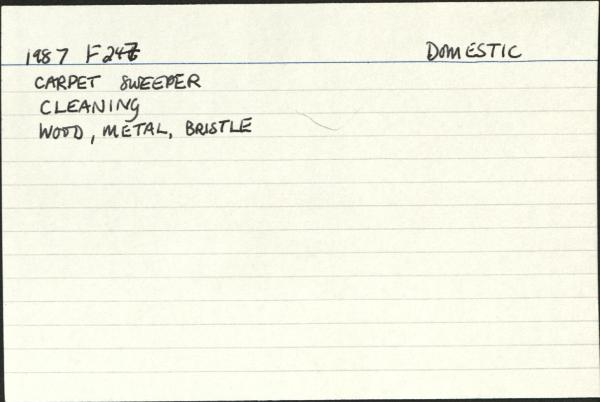 1987 F247 DOMESTIC
CARPET SWEEPER
CLEANING
WOOD, METAL, BRISTLE